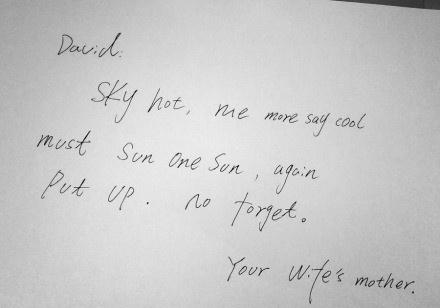 David:
SKY hot, me more say cool
must Sun one Sun, again
Put up. no forget.
Your Wife's mother.